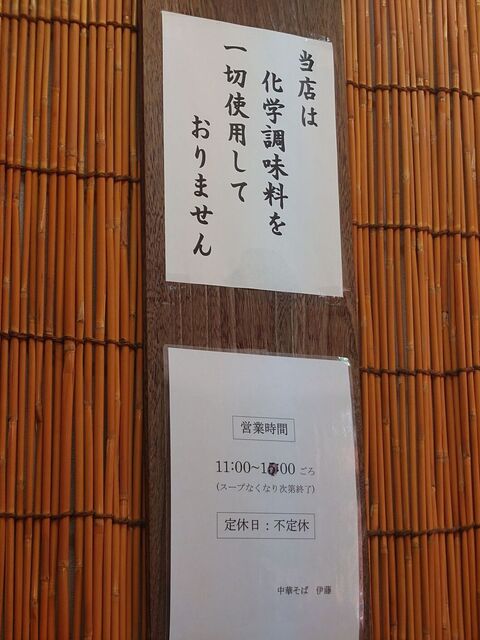 当店は
化学調味料を
一切使用して
おりません
営業時間
11:00~1 :00 ごろ
(スープなくなり次第終了)
定休日：不定休
中華そば 伊藤